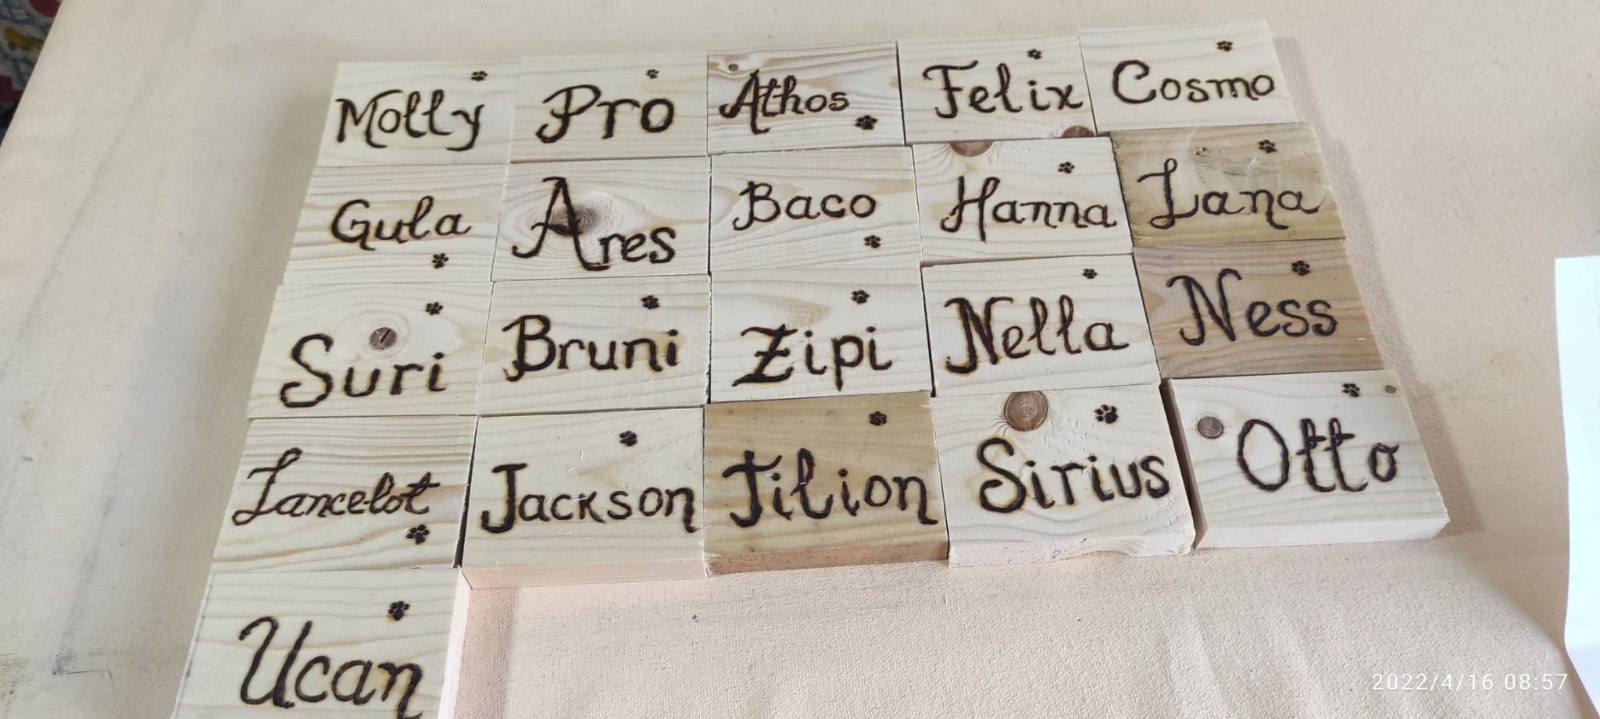 Molly Pro Athos Felix Cosmo
Gula Ares Baco Hanna Lana
Suri Bruni Zipi Nella Ness
Lancelot Jackson Tilion Sirius Otto
Ucan
2022/4/16 08:57